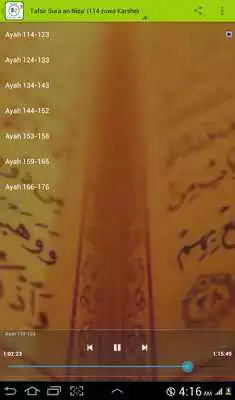 Tafsir Sura an-Nisa' (114 zuwa Karshe)
Ayah 114-123
Ayah 124-133
Ayah 134-143
Ayah 144-152
Ayah 153-158
Ayah 159-165
Ayah 166-176
Ayah 114-123
1:02:23
1:15:40
4:16 AM